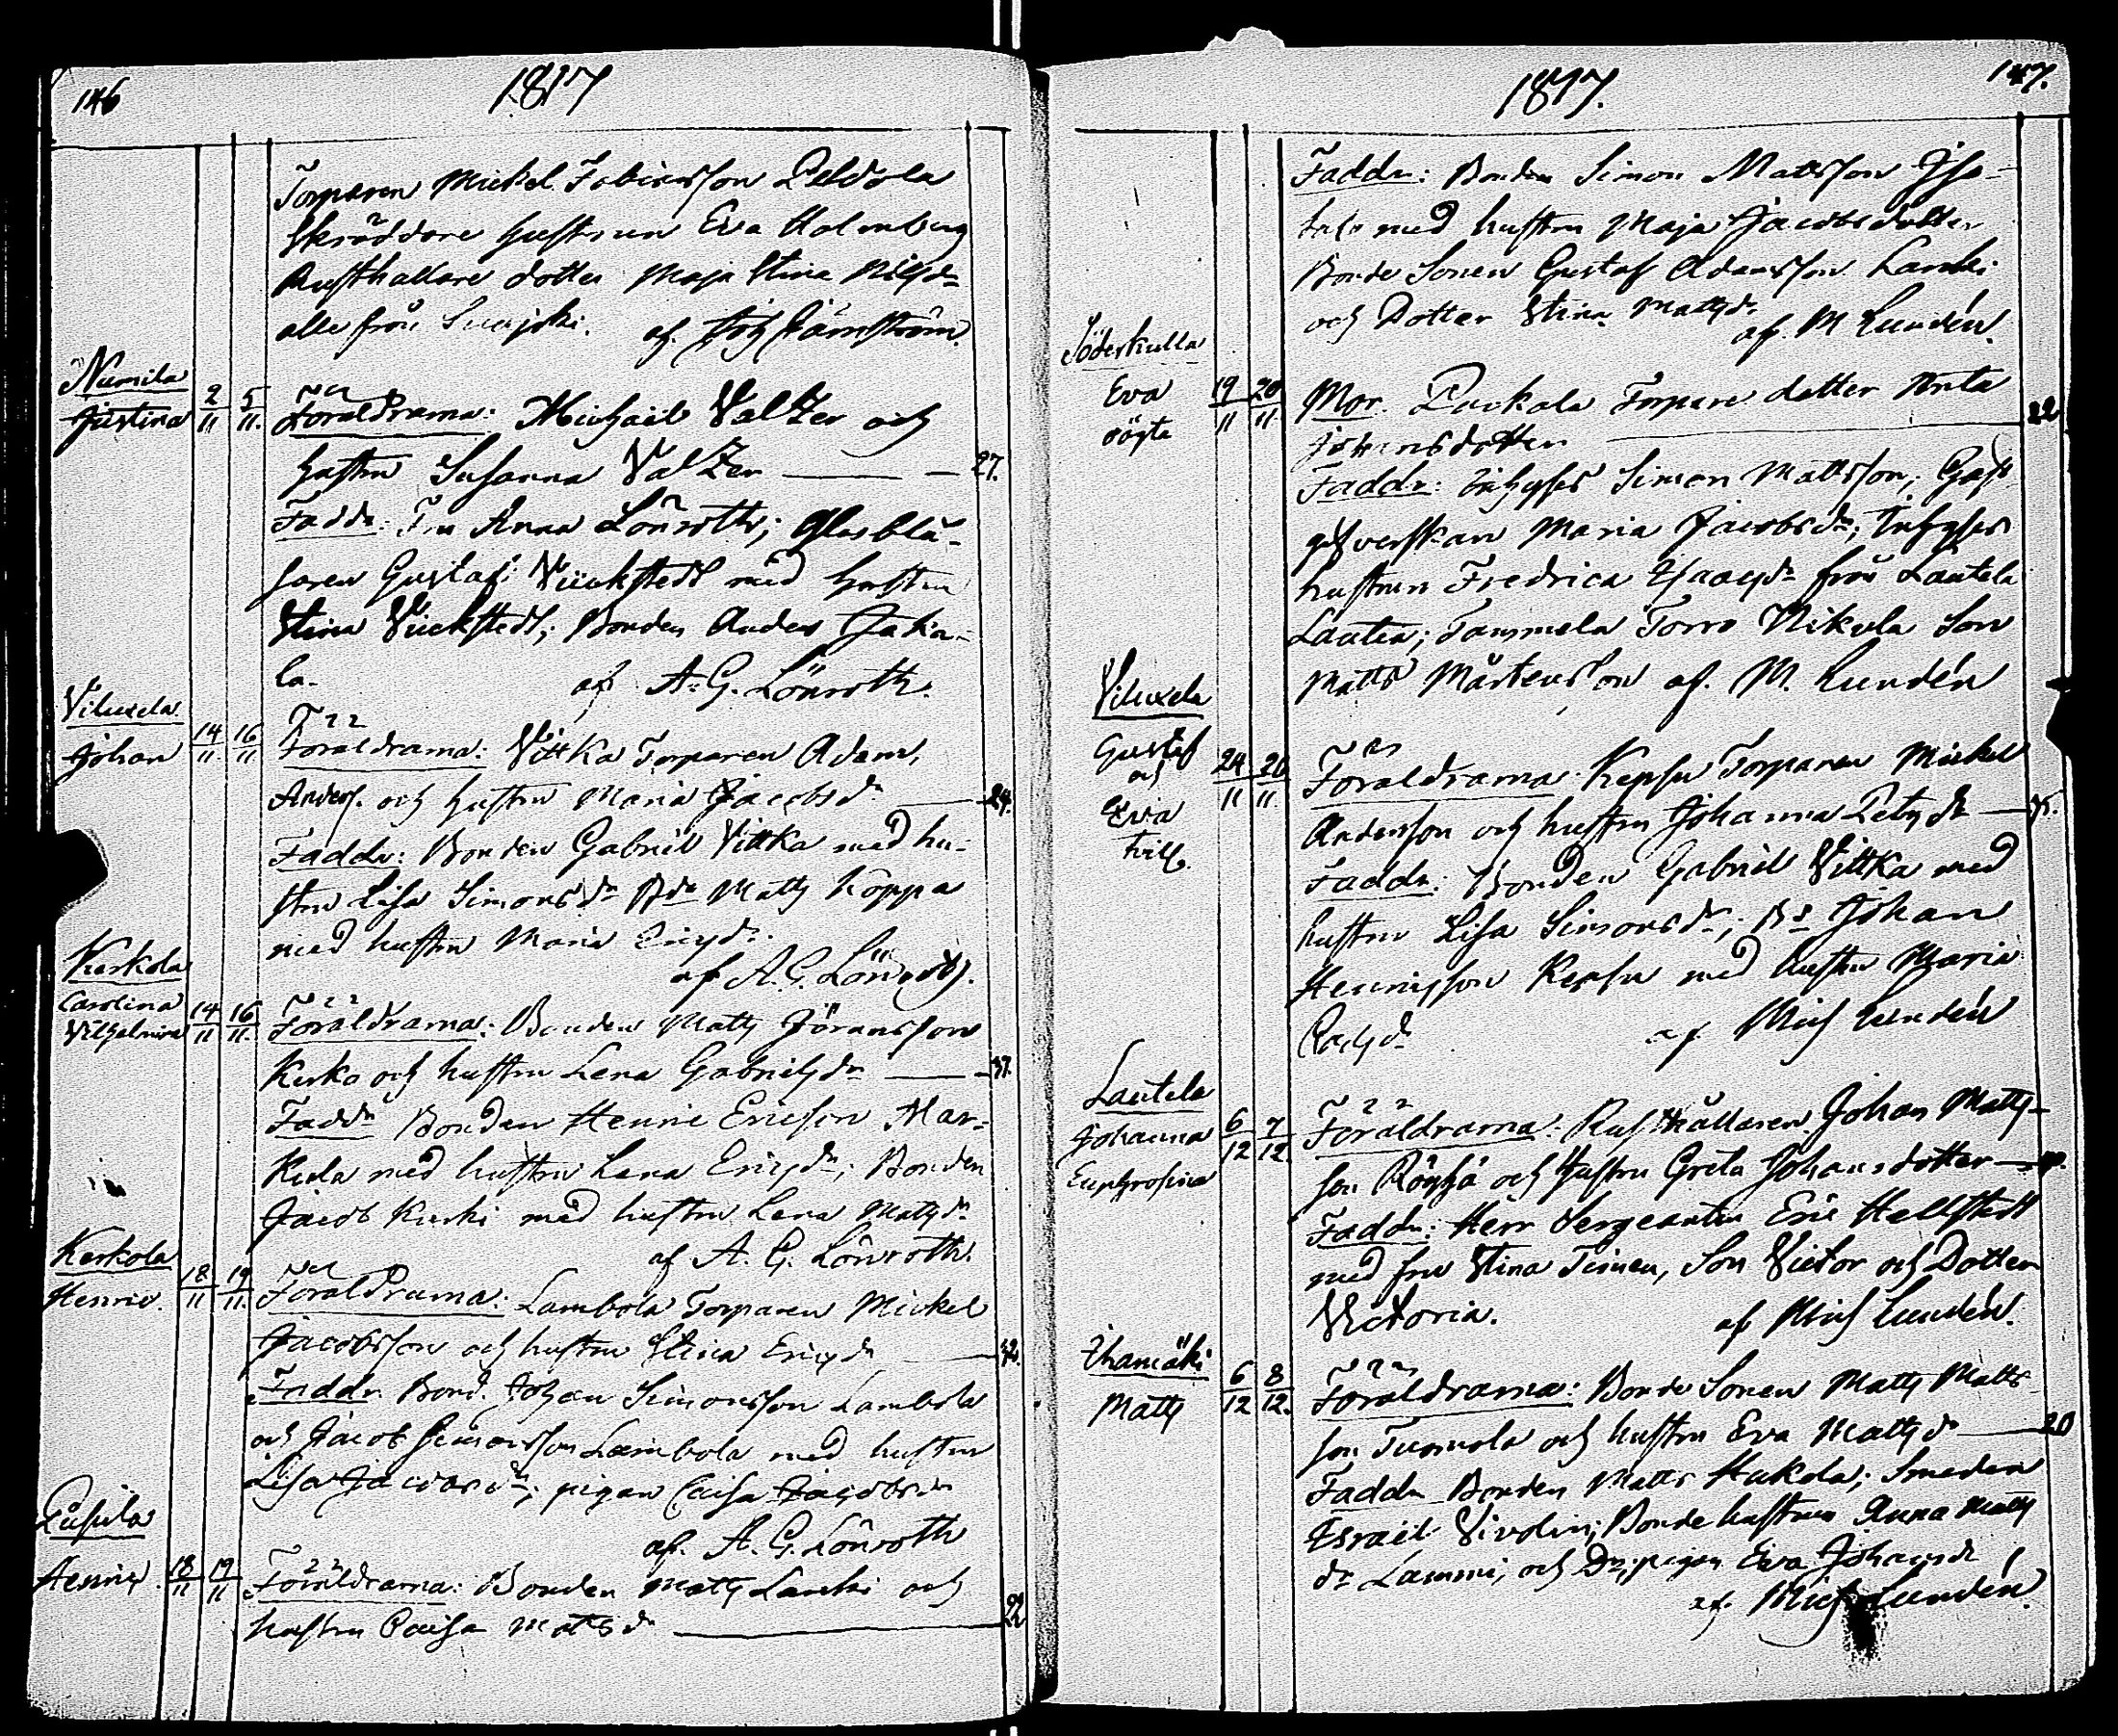 146
1817
Torparen Mickel Fabiansson Peldola
Skräddare hustrun Eva Holmberg
Rusthållare dotter Maja Stina
alla från af. Joh Järnström.
Numila
Justina 2/11 5/11.
Föräldrarna: Michail Valzer och
hustru Susanna Valzer 27.
Faddr: Anna Lönroth; Glasblå-
saren Gustaf Vückstedt med hustru
Stina Vückstedt; Bonden Anders Jaka-
la. af A. G. Lönroth.
Viluxela
Johan 14/11. 16/11.
Föräldrarna: Vittka Torparen Adam
Anders. och hustru Maria Jacobsdr 24.
Faddr: Bonden Gabriel Vittka med hu-
stru Lisa Simonsdr Bdn Matts Koppa
med hustru Maria Ericsdr.
af A. G. Lönroth.
Kerkola
Carolina
Vilhelmina 14/11 16/11.
Föräldrarna: Bonden Matts Göransson
Kerko och hustru Lena Gabrielsdr 37.
Faddr Bonden Henric Ericson Mar-
kula med hustru Lena Ericsdr; Bonden
Jacob Kurki med hustru Lena Mattsdr
af A. G. Lönroth.
Kerkola
Henric. 18/11 19/11.
Föräldrarna: Lambola Torparen Mickel
Jacobsson och hustru Stina Ericsdr
Faddr Bond. Johan Simonsson Lambola
och Jacob Simonsson Lambola med hustru
Lisa Jacobsdr; pigan Caisa Jacobsdr
af. A. G. Lönroth
Pusula
Henric. 18/11 19/11
Föräldrarna: Bonden Matts Lauki och
hustru Caisa Mattsdr 22
147.
1817.
Faddr: Bonden Simon Mattsson Iso-
talo med hustru Maja Jacobsdotter
Bonde Sonen Gustaf Adamsson Lauki
och Dotter Stina Mattsdr
af. M Lundén.
Söderkulla
Eva
oägta 19/11 20/11.
Mor. Puckala Torpare dotter Anta
Johansdotter 22.
Faddr: Inhyses Simon Mattsson; Gäst
gifverskan Maria Jacobsdr; Inhyses
hustrun Fredrica Isaacsdr från Lautela
Lautia; Tammela Torro Nikula Son
Matts Mårtenson af. M. Lundén
Viluxela
Gustaf
och
Eva
tvill. 24/11 26/11.
Föräldrarna: Kepsu Torparen Mickel
Andersson och hustru Johanna Petersdr
Faddr: Bonden Gabriel Vittka med
hustru Lisa Simonsdr; Bd Johan
Henricsson Kepsu med hustru Maria
Carlsdr af. Mich Lundén
Lautela
Johanna
Euphrosina 6/12 7/12.
Föräldrarna: Rusthållaren Johan Matts-
son Röyhö och Hustru Greta Johansdotter
Faddr: Herr Sergeanten Eric Hellstedt
med fru Stina Simen, Son Victor och Dotter
Victoria. af Mich Lundén.
Ihamäki
Matts 6/12 8/12.
Föräldrarna: Bonde Sonen Matts Matts-
son Tuomola och hustru Eva Mattsdr 20
Faddr Bonden Matts Hakola; Smeden
Israël Vivolin; Bonde hustrun Anna Matts
dr Lammi, och Dr, pigan Eva Johansdr
af. Mich Lundén.